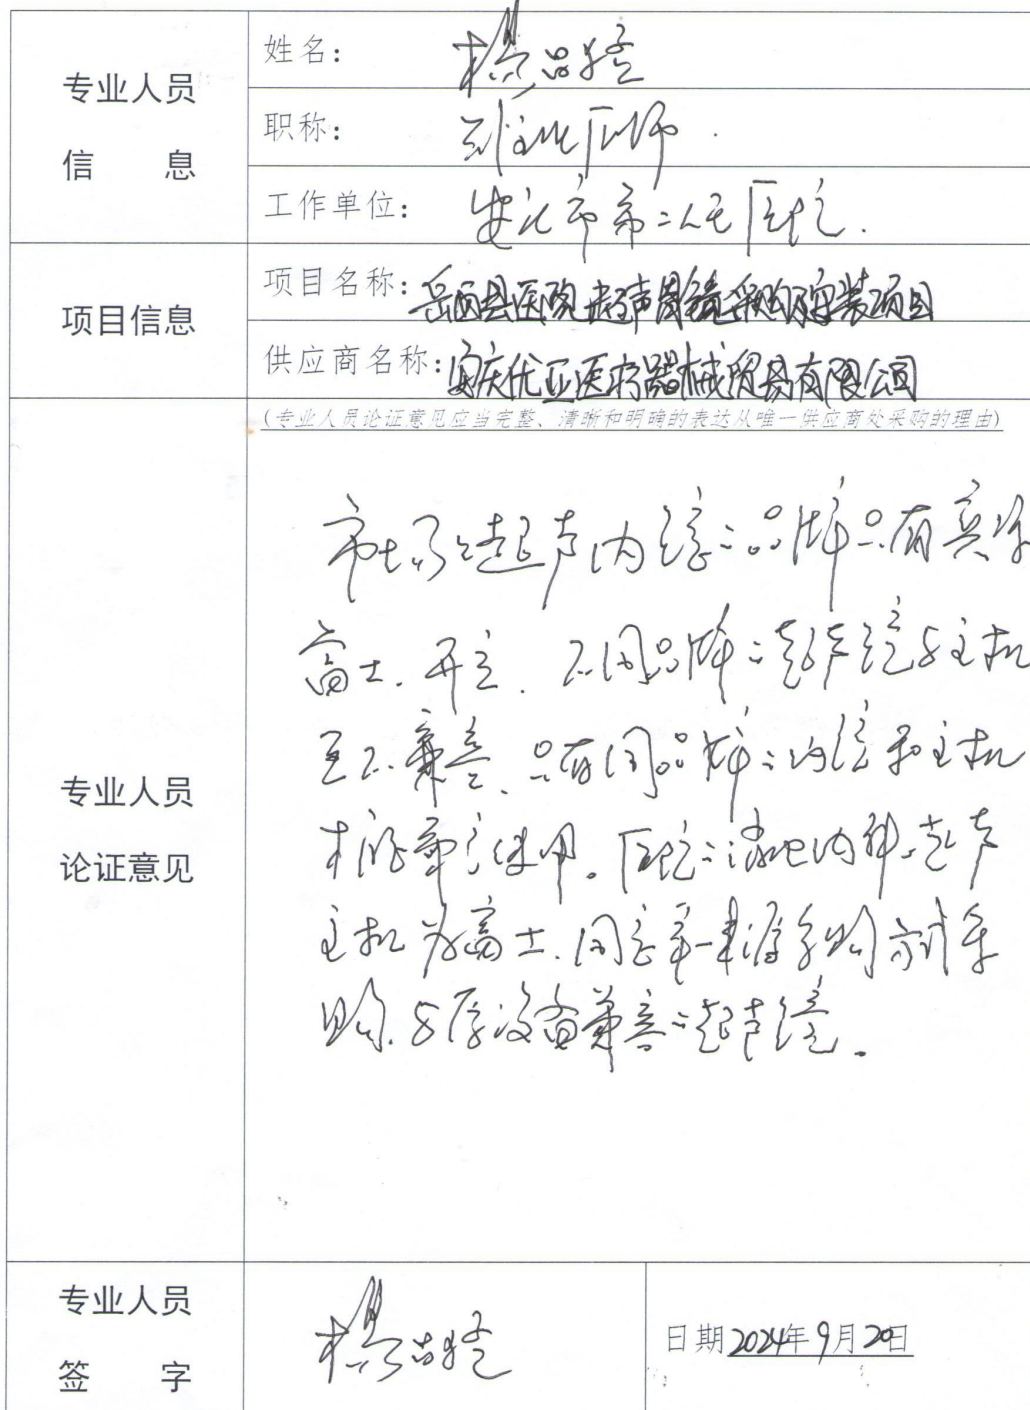 专业人员
信 息
姓名:
职称: 副主任医师.
工作单位: 安庆市第二人民医院.
项目信息
项目名称: 岳西县医院超声胃镜采购安装项目
供应商名称: 安庆优亚医疗器械贸易有限公司
(专业人员论证意见应当完整、清晰和明确的表达从唯一供应商处采购的理由)
专业人员
论证意见
市场上超声内镜之品牌只有奥林
富士. 开立. 不同品牌之超声镜与主机
互不兼容. 只有同品牌之内镜和主机
才能兼容使用。医院之消化内科超声
主机为富士. 同意单一来源采购方式采
购. 与原设备兼容之超声镜.
专业人员
签 字
日期 2024年9月20日